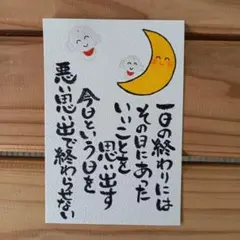 一日の終わりには
その日にあった
いいことを
思い出す
今日という日を
悪い思い出で終わらせない